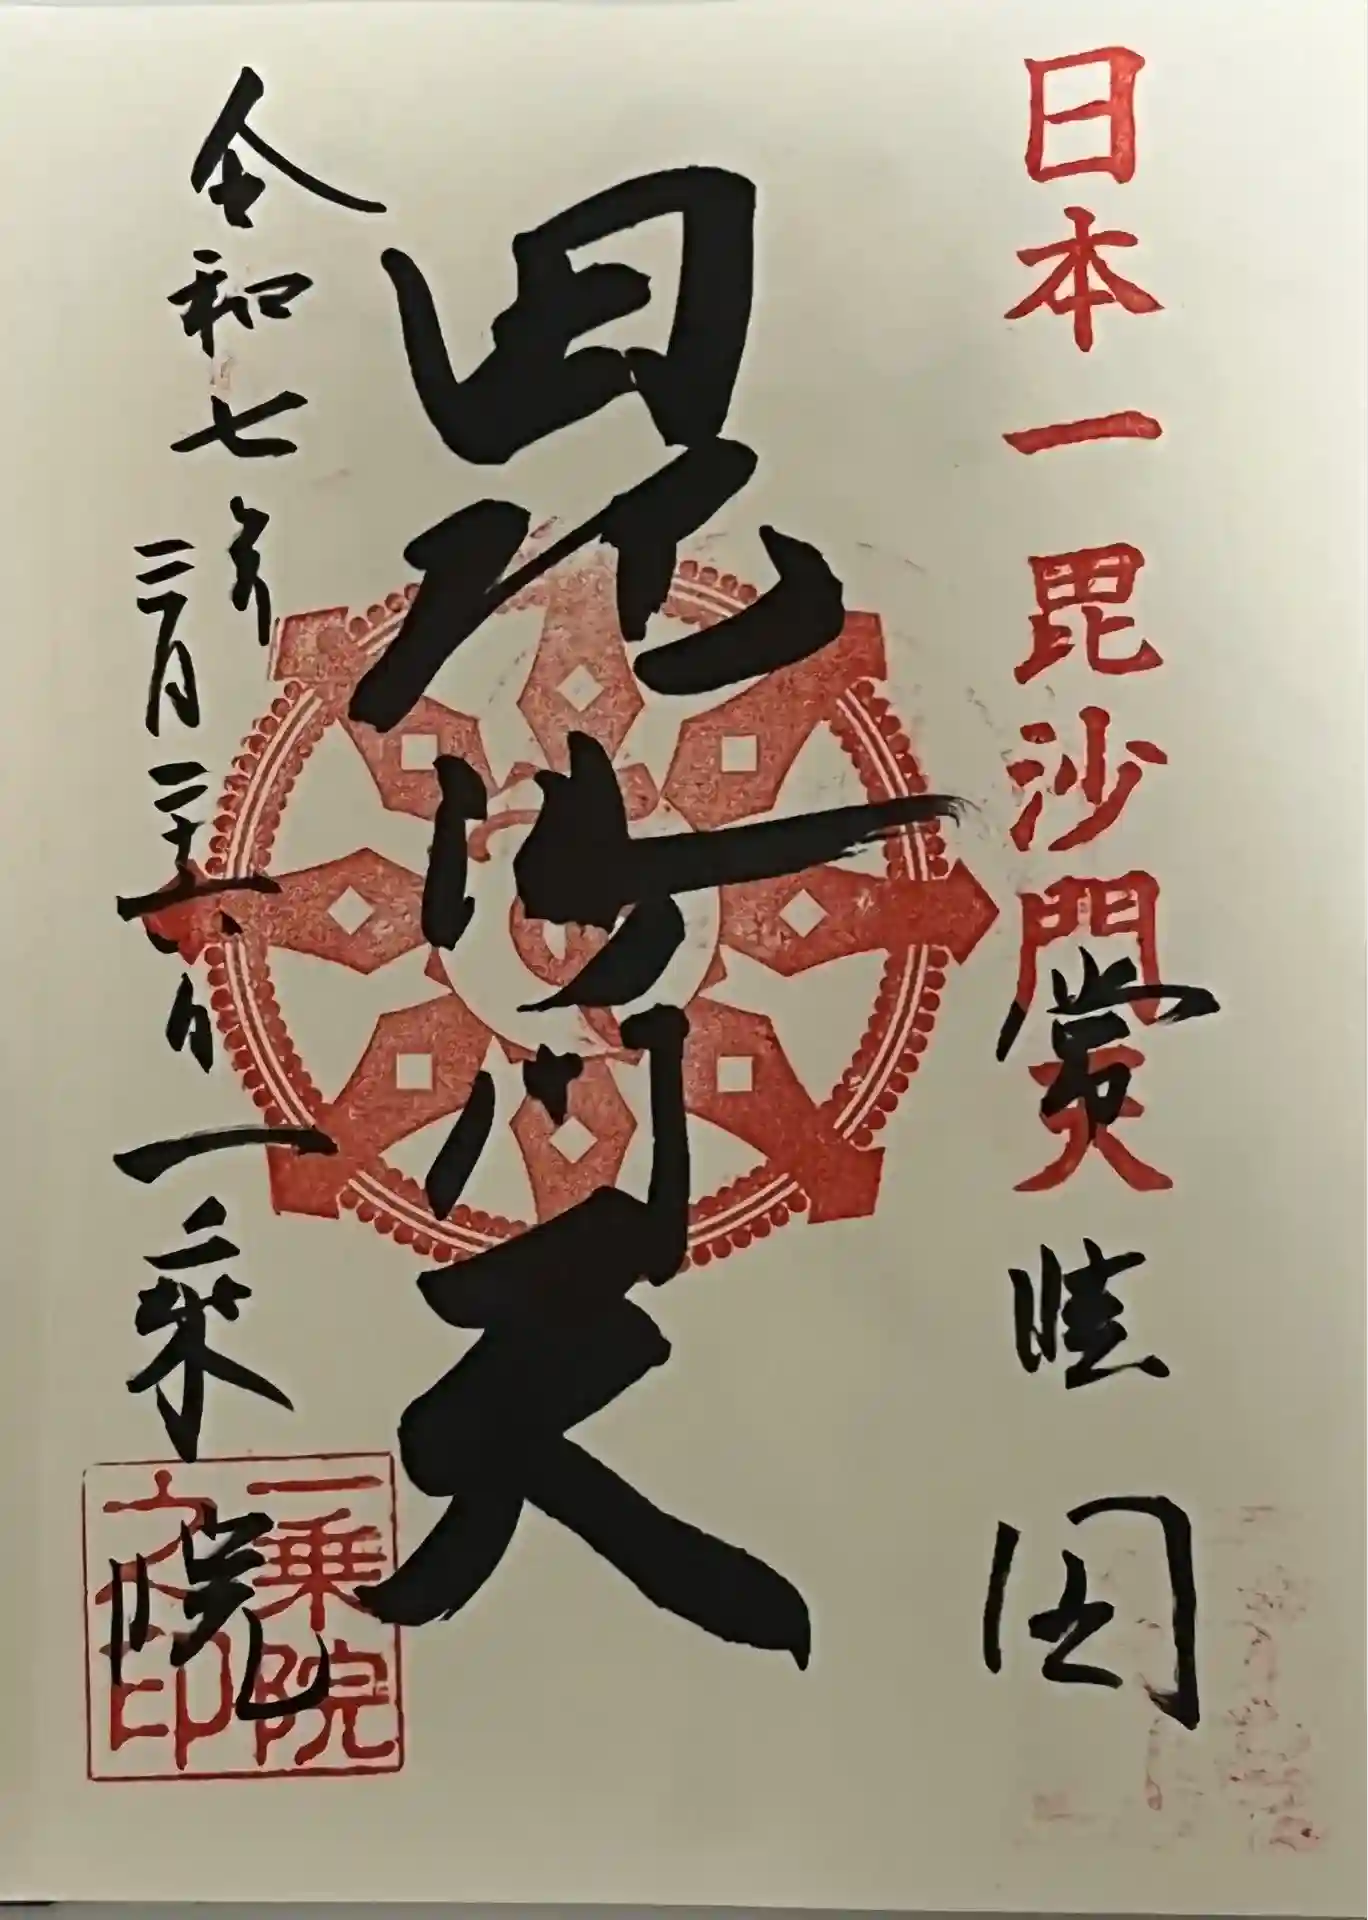 日本一毘沙門天
常陸国
毘沙門天
令和七年
三月二十六日
一乗院
一乗院
之印